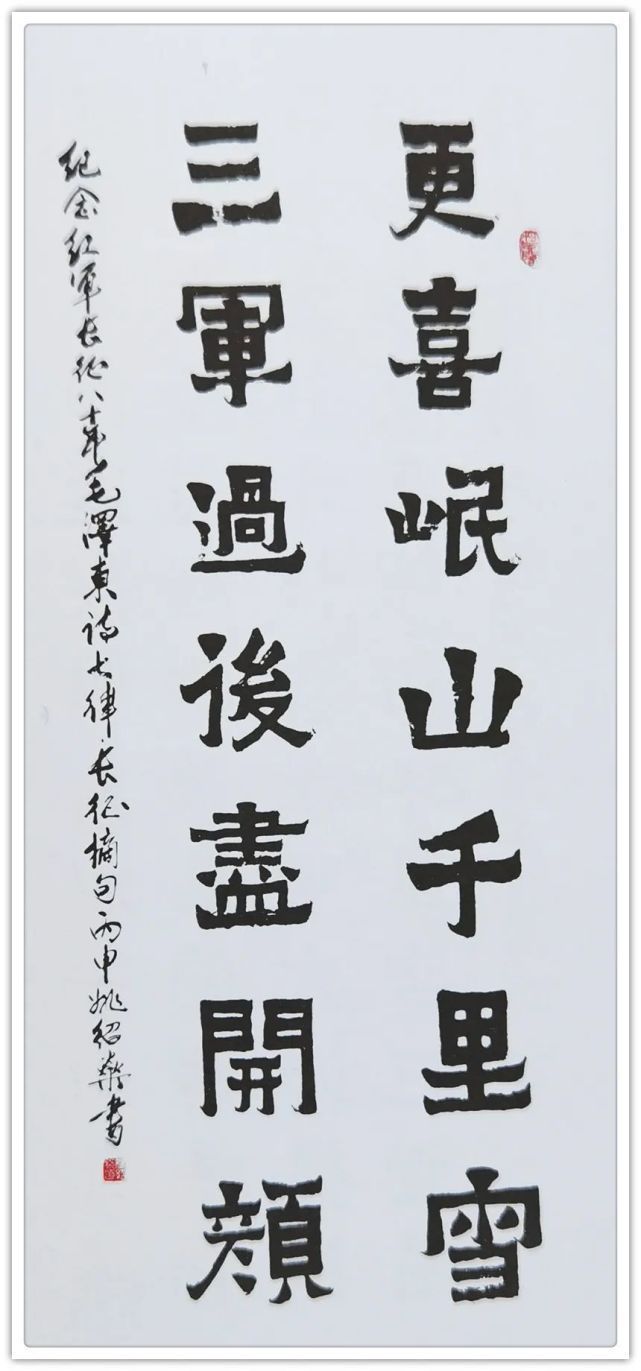 更喜岷山千里雪
三軍過後盡開顔
紀念红軍长征八十年毛澤東诗七律长征摘句丙申姚绍燊書